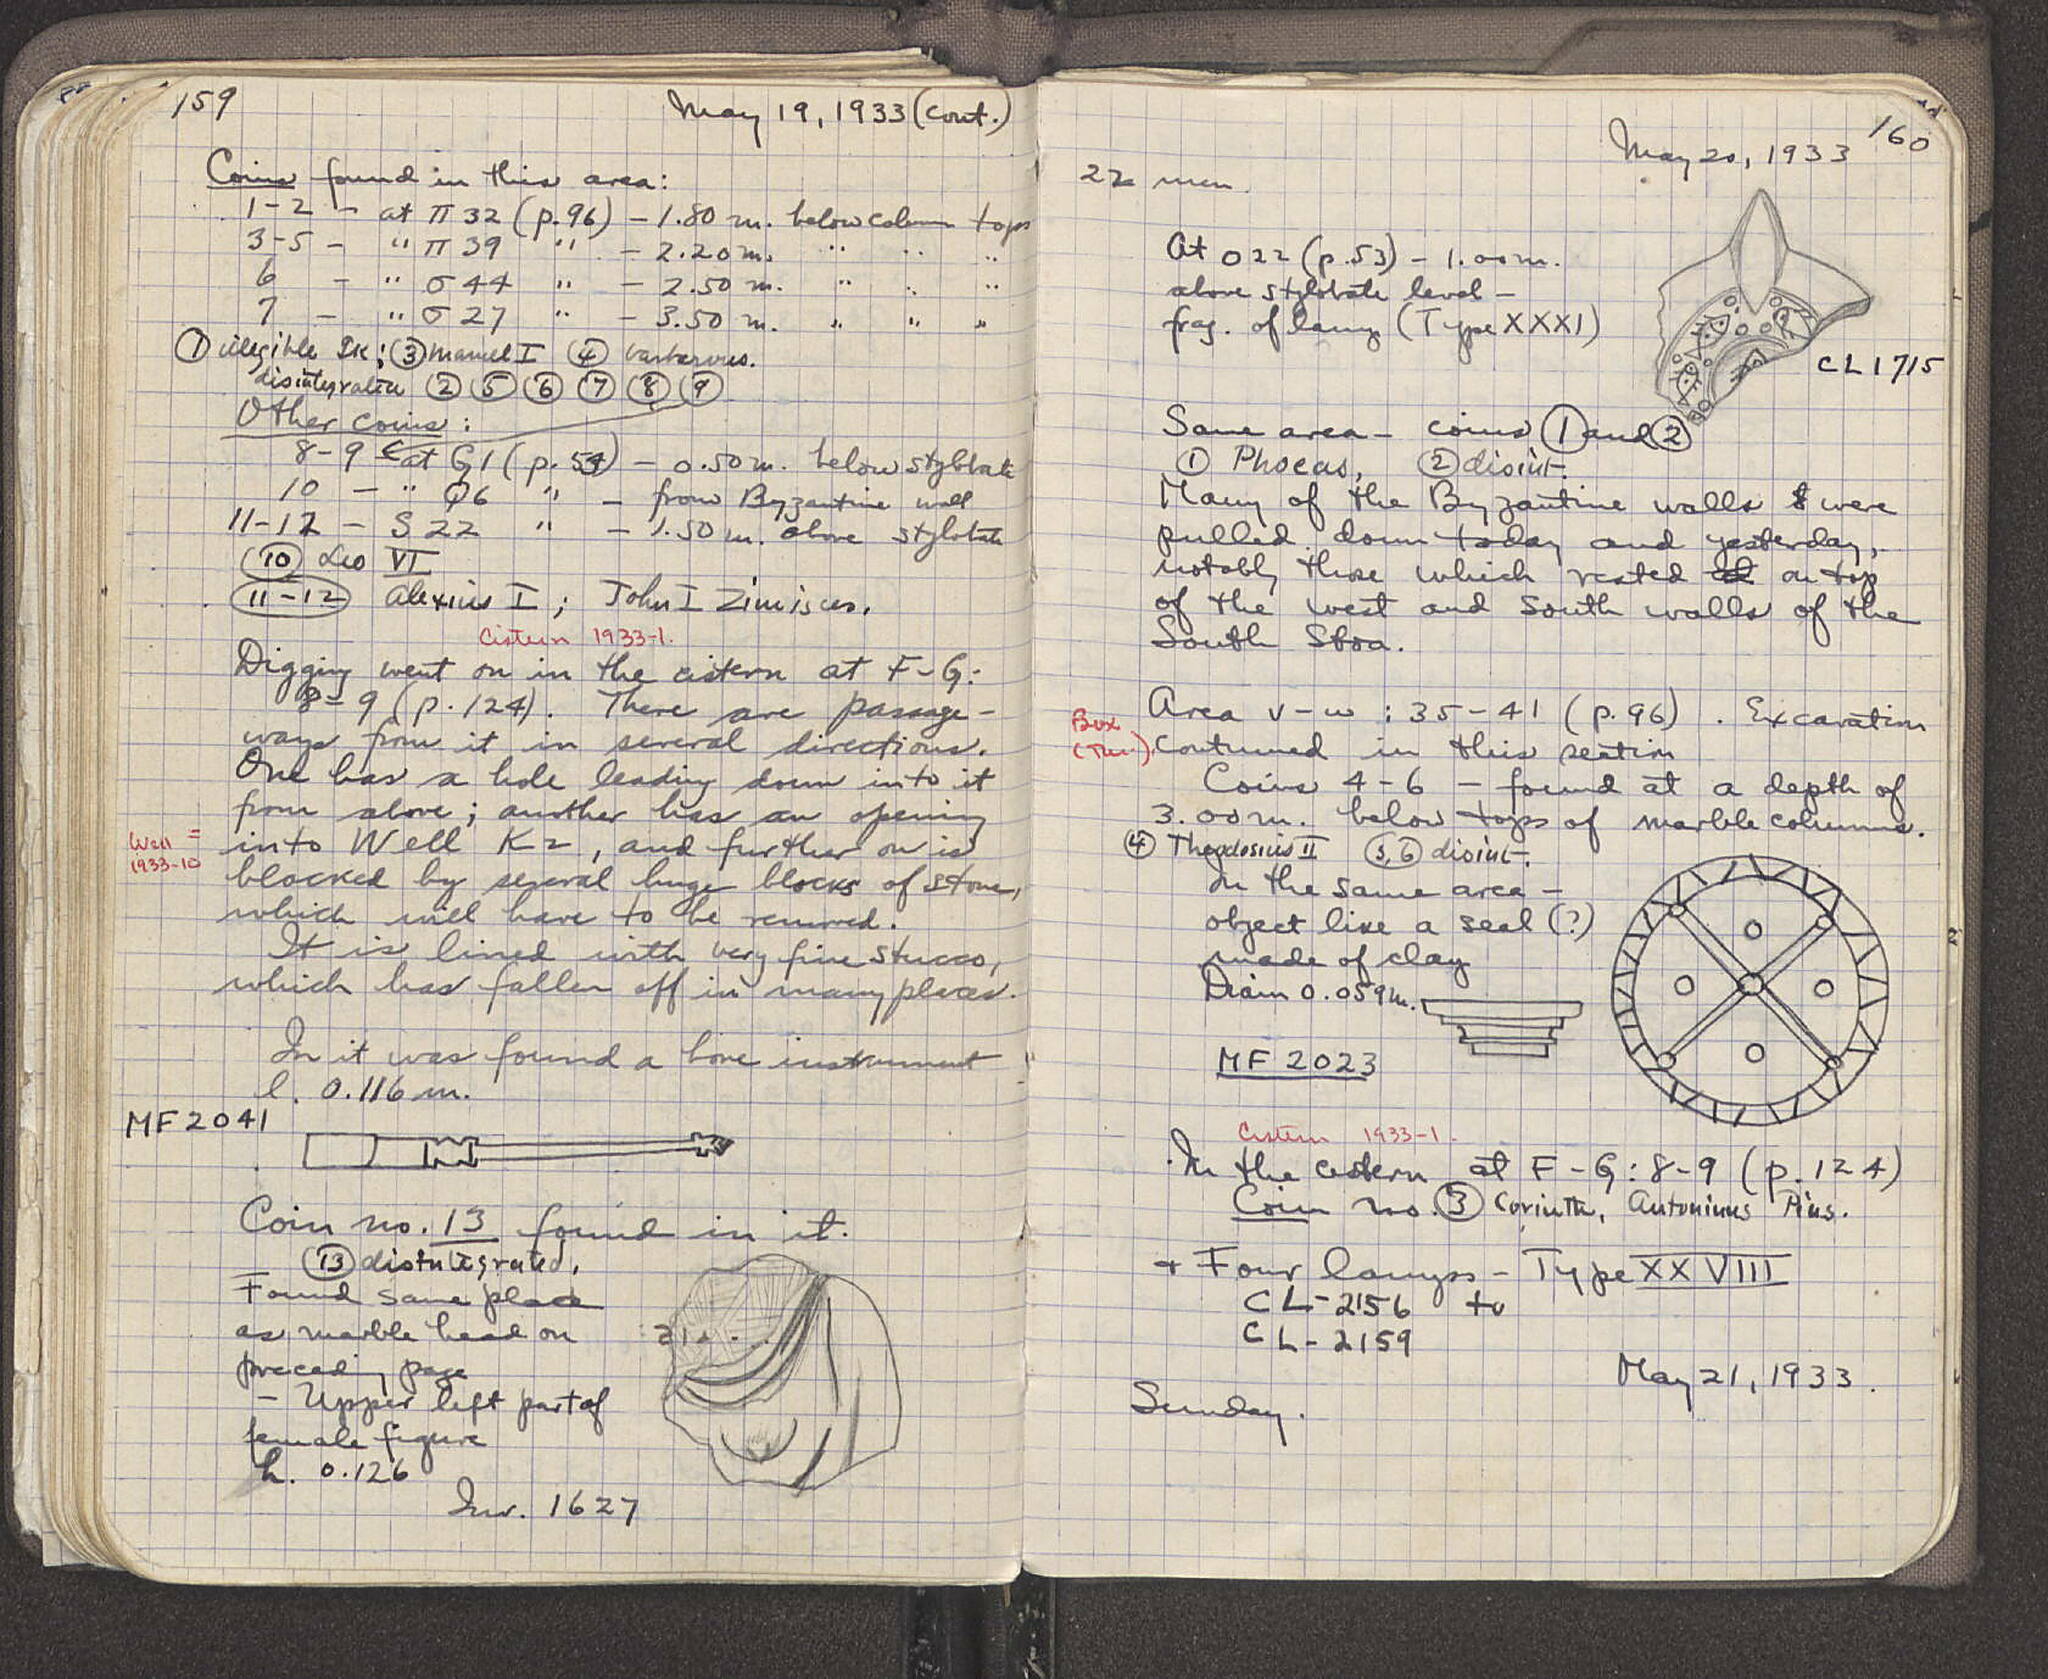 159
May 19, 1933 (cont.)
Coins found in this area:
1-2 - at π 32 (p. 96) - 1.80 m. below column tops
3-5 - " π 39 " - 2.20 m. " " "
6 - " σ 44 " - 2.50 m. " " "
7 - " σ 27 " - 3.50 m. " " "
① illegible ; ③ Manuel I ④ barbarous.
disintegrated ② ⑤ ⑥ ⑦ ⑧ ⑨
Other coins:
8-9 at G1 (p. 54) - 0.50 m. below stylobate
10 - " Q6 " - from Byzantine wall
11-12 - S 22 " - 1.50 m. above stylobate
⑩ Leo VI
(11-12) Alexius I ; John I Zimisces.
Cistern 1933-1.
Digging went on in the cistern at F-G:
8-9 (p. 124). There are passage-
ways from it in several directions.
One has a hole leading down into it
from above; another has an opening
Well = 1933-10
into Well K2, and further on is
blocked by several huge blocks of stone,
which will have to be removed.
It is lined with very fine stucco,
which has fallen off in many places.
In it was found a bone instrument
l. 0.116 m.
MF 2041
Coin no. 13 found in it.
⑬ disintegrated.
Found same place
as marble head on
preceding page
- Upper left part of
female figure
h. 0.126
Inv. 1627
160
May 20, 1933
22 men.
At O 22 (p. 53) - 1.00 m.
above stylobate level -
frag. of lamp (Type XXXI)
CL 1715
Same area - coins ① and ②
① Phocas, ② disint.
Many of the Byzantine walls were
pulled down today and yesterday,
notably those which rested on top
of the west and south walls of the
South Stoa.
Area v-w : 35-41 (p. 96) . Excavation
Box
continued in this section
Coins 4-6 - found at a depth of
3.00 m. below tops of marble columns.
④ Theodosius II (5, 6) disint.
In the same area -
object like a seal (?)
made of clay
Diam 0.059 m.
MF 2023
Cistern 1933-1.
In the cistern at F-G: 8-9 (p. 124)
Coin no. ③ Corinth, Antoninus Pius.
+ Four lamps - Type XXVIII
CL-2156 to
CL-2159
May 21, 1933.
Sunday.